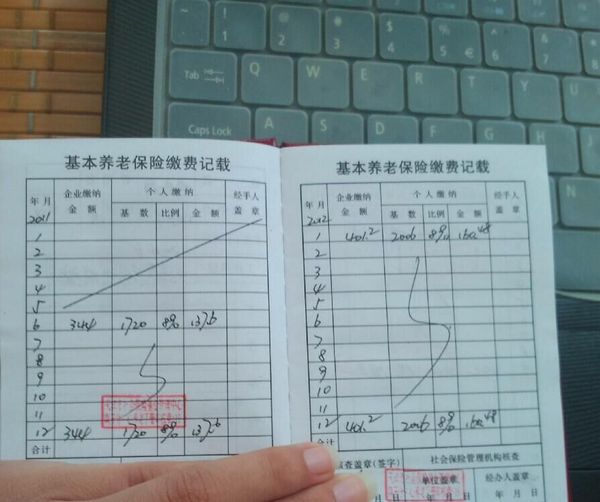 ! 1
@ 2
# 3
$ 4
% 5 €
^ 6
& 7
* 8
Tab
Q W E R T Y U
Caps Lock A S D F G H
基本养老保险缴费记载
年月 企业缴纳金额 个人缴纳 经手人盖章
基数 比例 金额
2011
1
2
3
4
5
6 344 1720 8% 137.6
7
8
9
10
11
12 344 1720 8% 137.6
合计
基本养老保险缴费记载
年月 企业缴纳金额 个人缴纳 经手人盖章
基数 比例 金额
2012
1 401.2 2006 8% 160.48
2
3
4
5
6
7
8
9
10
11
12 401.2 2006 8% 160.48
合计
核查盖章(签字) 社会保险管理机构核查
单位盖章 经办人盖章
年 月 日 年 月 日